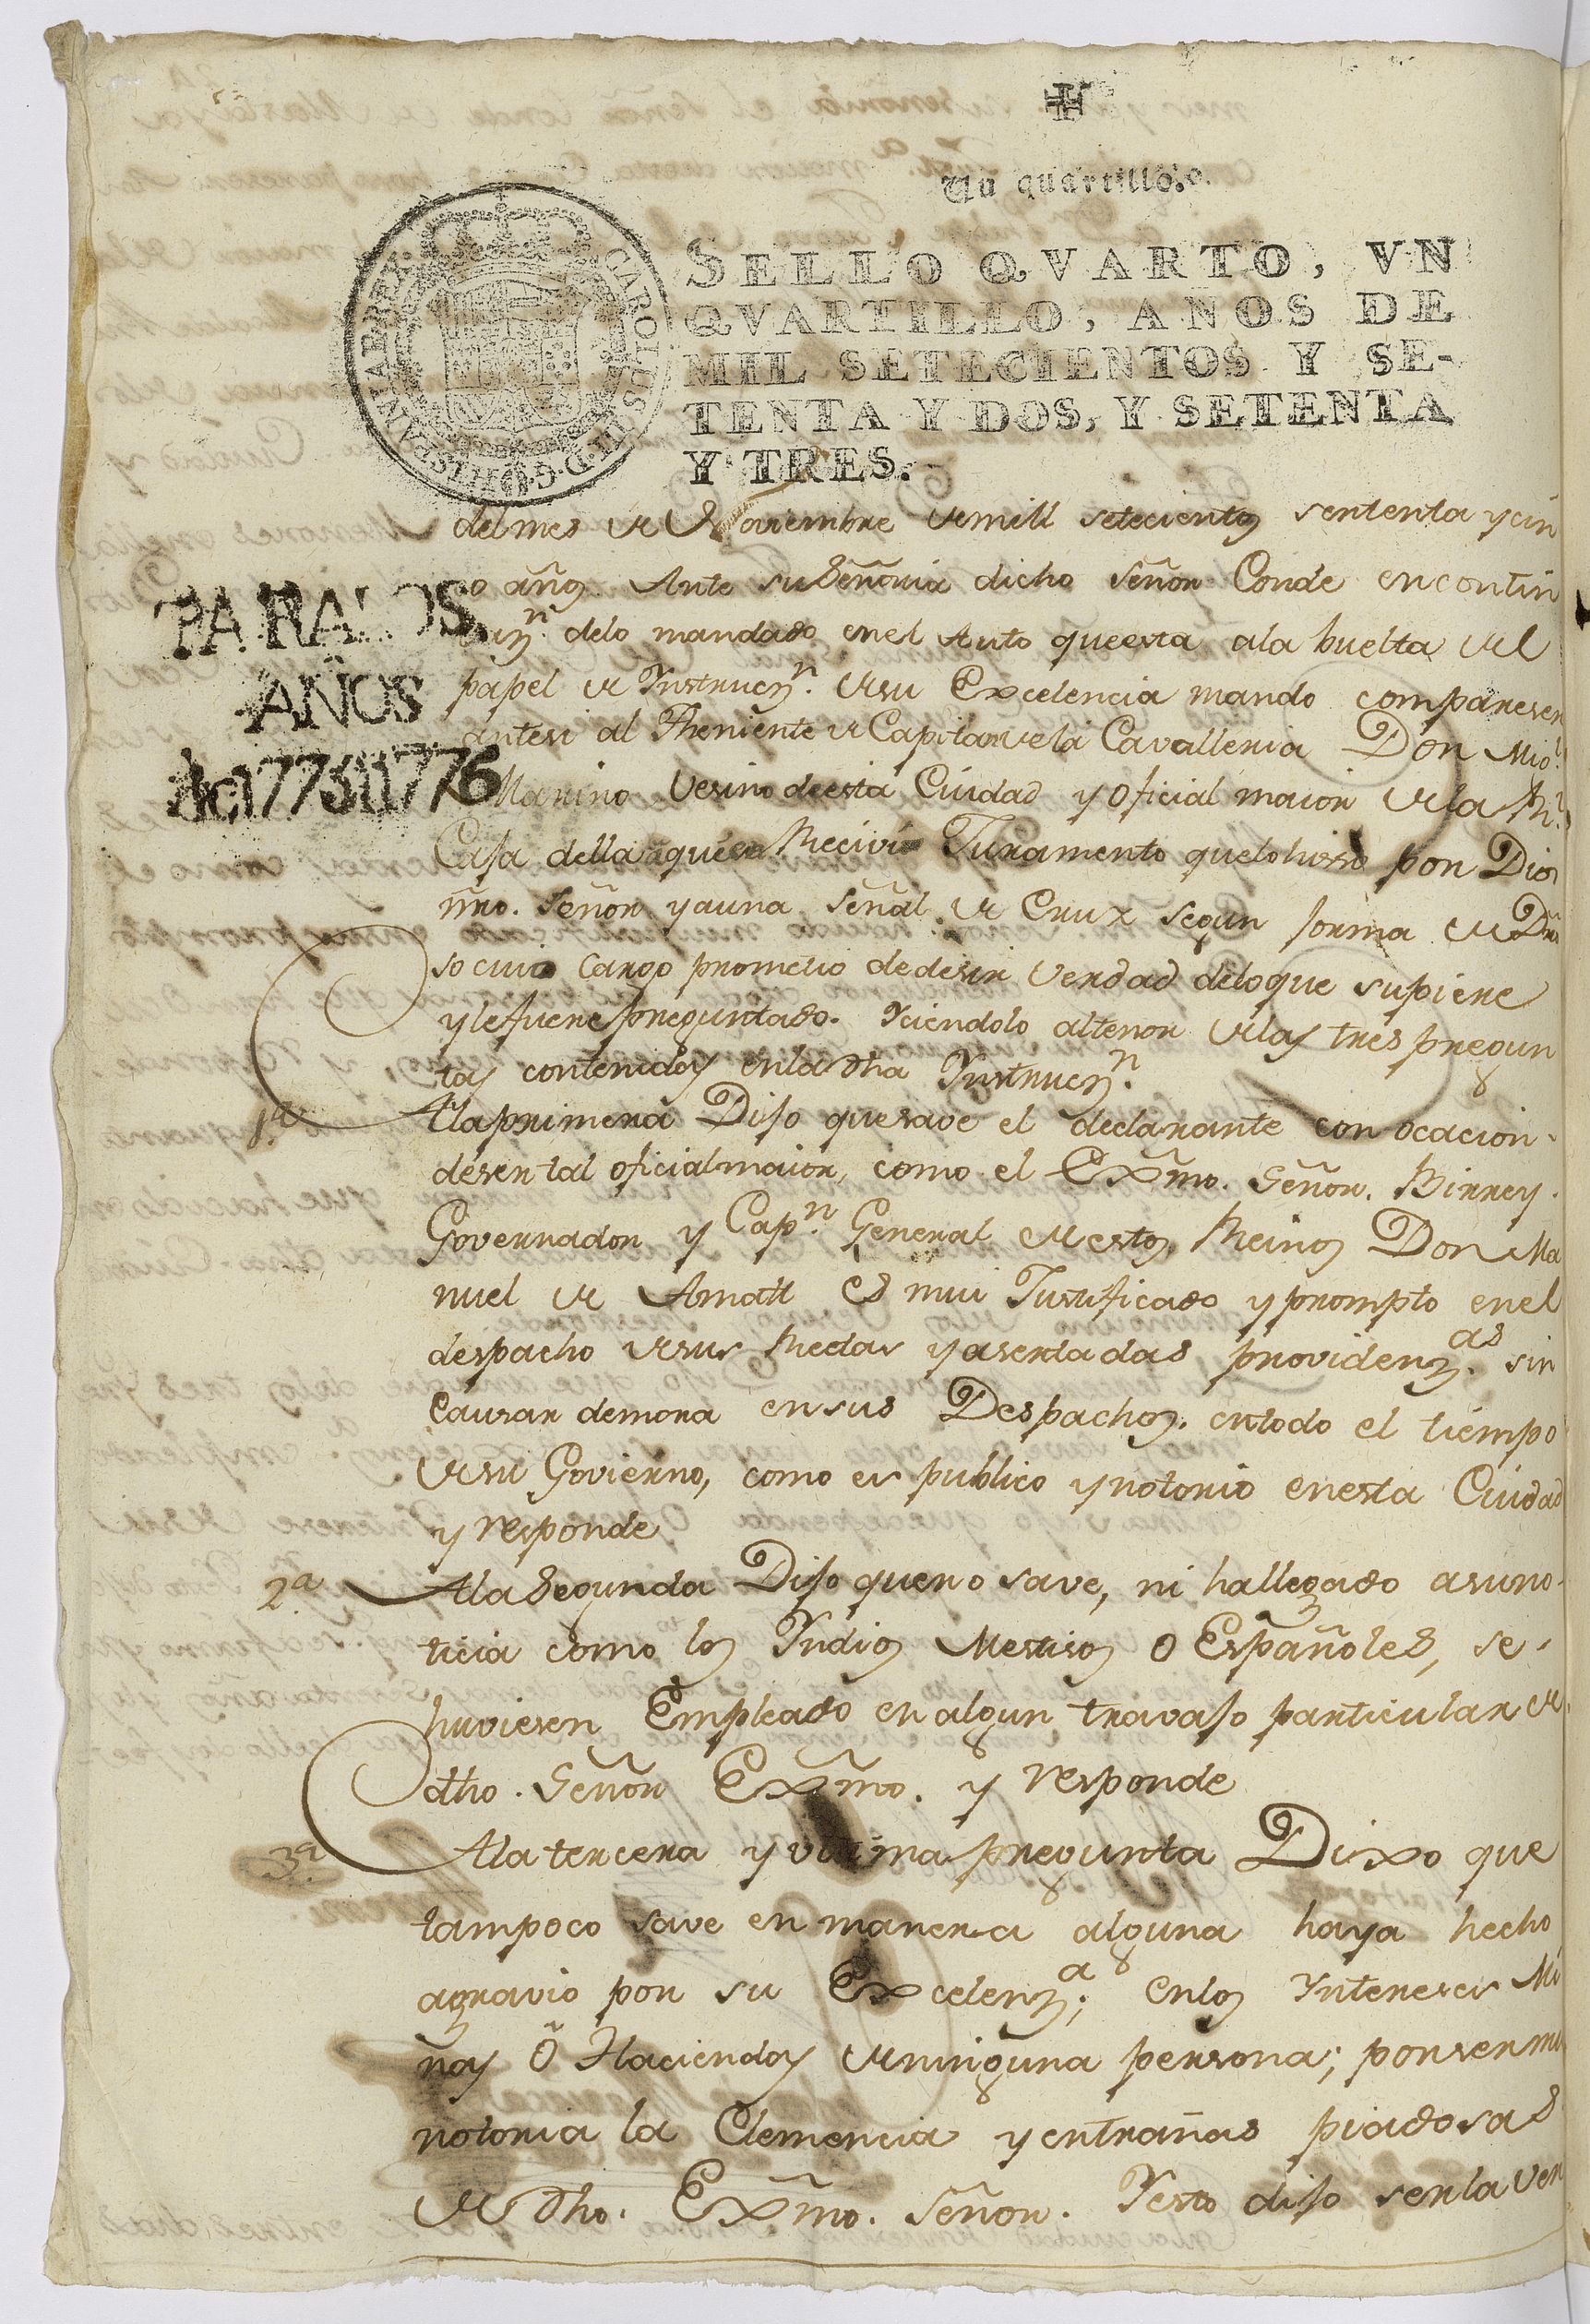 Un quartillo.
SELLO QVARTO, VN
QVARTILLO, AÑOS DE
MIL SETECIENTOS Y SE-
TENTA Y DOS, Y SETENTA
Y TRES.
CAROLUS III D. G. HISPANIAR
PARA LOS
AÑOS
de 1775 1776
del mes de Noviembre de mill setecientos sententa y cin
co años. Ante su Señoria dicho Señor Conde en contin
uazn. delo mandado en el Auto que esta ala buelta del
papel de Instruczn. de su Excelencia mando compareser
antesi al Theniente de Capitan dela Cavalleria Don Migl.
Marino Vesino de esta Ciudad y oficial maior de la Rl.
Casa della que Recivi Juramento que lo hisso por Dios
ñro. Señor y a una señal de Crux segun forma de Dro
so cuio cargo prometio de desir Verdad delo que supiere
y le fuere preguntado. Yciendolo al tenor de las tres pregun
tas contenidas en la dha Instruczn.
1.a A la primera Dijo que save el declarante con ocacion
de ser tal oficial maior, como el Exmo. Señor. Birrey.
Governador y Capn. General de estos Reinos Don Ma
nuel de Amatt es mui Justificado y prompto en el
despacho de sus Rectas y asertadas providenzas. sin
Causar demora en sus Despachos. en todo el tiempo
de su Govierno, como es publico y notorio en esta Ciudad
y responde
2.a A la Segunda Dijo que no save, ni ha llegado a su no-
ticia como los Yndios Mestisos o Españoles, se
huviesen Empleado en algun travajo particular de
dho. Señor Exmo. y responde
3.a A la tercera y ultima pregunta Dixo que
tampoco save en manera alguna haya hecho
agravio por su Excelenza; en los Yntereses Mi
nas ô Haciendas de ninguna persona; por ser mui
notoria la Clemencia y entrañas piadosas
de dho. Exmo. Señor. Y esto dijo ser la ver